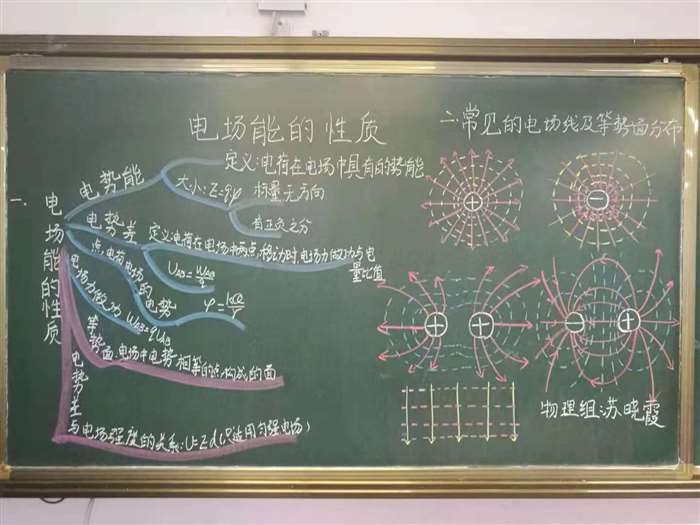 电场能的性质
一、电场能的性质
电势能
定义:电荷在电场中具有的势能
大小:E=qφ
标量无方向
有正负之分
电势差
定义:电荷在电场中两点移动时,电场力做功与电
量比值
U_AB=W_AB/q
点电荷电场的电势
φ=kQ/r
电场力做功 W_AB=qU_AB
等势面:电场中电势相等的点构成的面
电势差与电场强度的关系:U=Ed(只适用匀强电场)
二、常见的电场线及等势面分布
+
−
+
+
−
+
物理组:苏晓霞